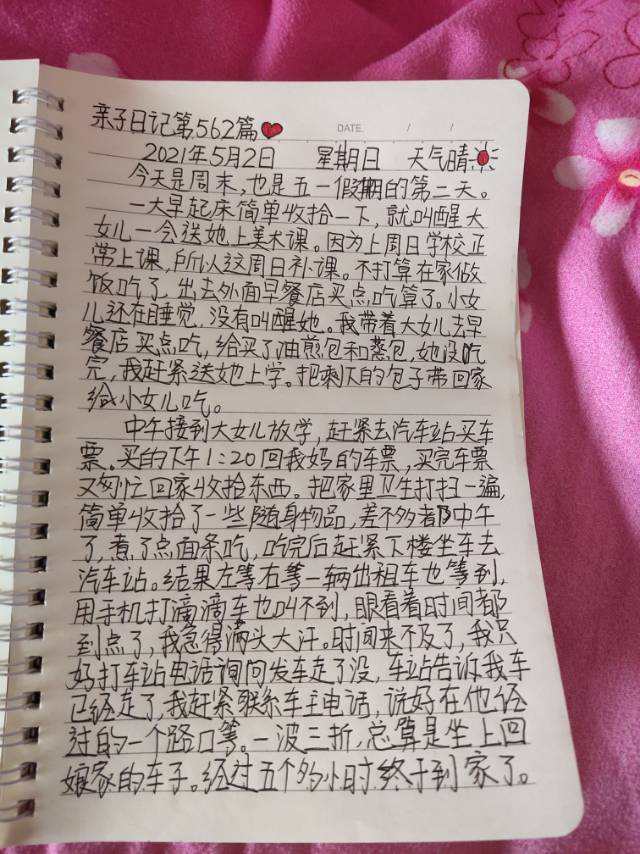 亲子日记第562篇
DATE. / /
2021年5月2日 星期日 天气晴
今天是周末,也是五一假期的第二天。
一大早起床简单收拾一下,就叫醒大
女儿一会送她上美术课。因为上周日学校正
常上课,所以这周日补课。不打算在家做
饭吃了,出去外面早餐店买点吃算了。小女
儿还在睡觉,没有叫醒她。我带着大女儿去早
餐店买点吃,给买了油煎包和蒸包,她没吃
完,我赶紧送她上学。把剩下的包子带回家
给小女儿吃。
中午接到大女儿放学,赶紧去汽车站买车
票。买的下午1:20回我妈的车票,买完车票
又匆忙回家收拾东西。把家里卫生打扫一遍,
简单收拾了一些随身物品,差不多都中午
了,煮了点面条吃,吃完后赶紧下楼坐车去
汽车站。结果左等右等一辆出租车也等到,
用手机打滴滴车也叫不到,眼看着时间都
到点了,我急得满头大汗。时间来不及了,我只
好打车站电话询问发车走了没,车站告诉我车
已经走了,我赶紧联系车主电话,说好在他经
过的一个路口等。一波三折,总算是坐上回
娘家的车子。经过五个多小时终于到家了。